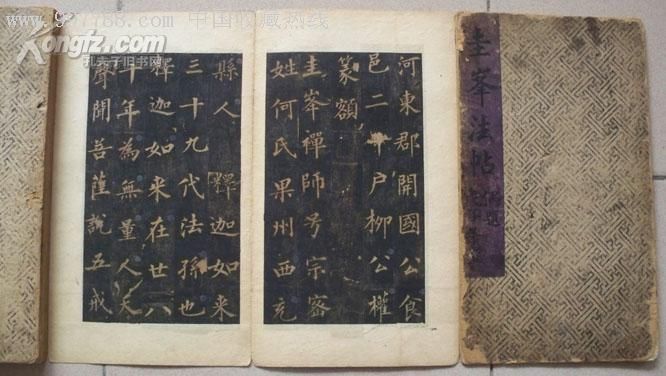 www.997788.com 中国收藏热线
Kongfz.com
孔夫子旧书网
圭峯法帖
河東郡開國公食
邑二千户柳公權
篆額
圭峯禪師号宗密
姓何氏果州西充
縣人釋迦如来
三十九代法孫也
釋迦如来在世八
十年為無量人天
聲聞菩薩說五戒